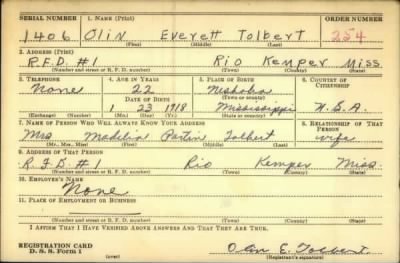 SERIAL NUMBER 1. NAME (Print) ORDER NUMBER
1406 Olin Everett Tolbert 254
(First) (Middle) (Last)
2. ADDRESS (Print)
R.F.D. #1 Rio Kemper Miss.
(Number and street or R. F. D. number) (Town) (County) (State)
3. TELEPHONE 4. AGE IN YEARS 5. PLACE OF BIRTH 6. COUNTRY OF CITIZENSHIP
None 22 Neshoba
DATE OF BIRTH (Town or county)
1 23 1918 Mississippi U.S.A.
(Exchange) (Number) (Mo.) (Day) (Yr.) (State or country)
7. NAME OF PERSON WHO WILL ALWAYS KNOW YOUR ADDRESS 8. RELATIONSHIP OF THAT PERSON
Mrs Tolbert wife
(Mr., Mrs., Miss) (First) (Middle) (Last)
9. ADDRESS OF THAT PERSON
R.F.D. #1 Rio Kemper Miss.
(Number and street or R. F. D. number) (Town) (County) (State)
10. EMPLOYER'S NAME
None
11. PLACE OF EMPLOYMENT OR BUSINESS
(Number and street or R. F. D. number) (Town) (County) (State)
I AFFIRM THAT I HAVE VERIFIED ABOVE ANSWERS AND THAT THEY ARE TRUE.
REGISTRATION CARD
D. S. S. Form 1 (over) Olin E. Tolbert
(Registrant's signature)